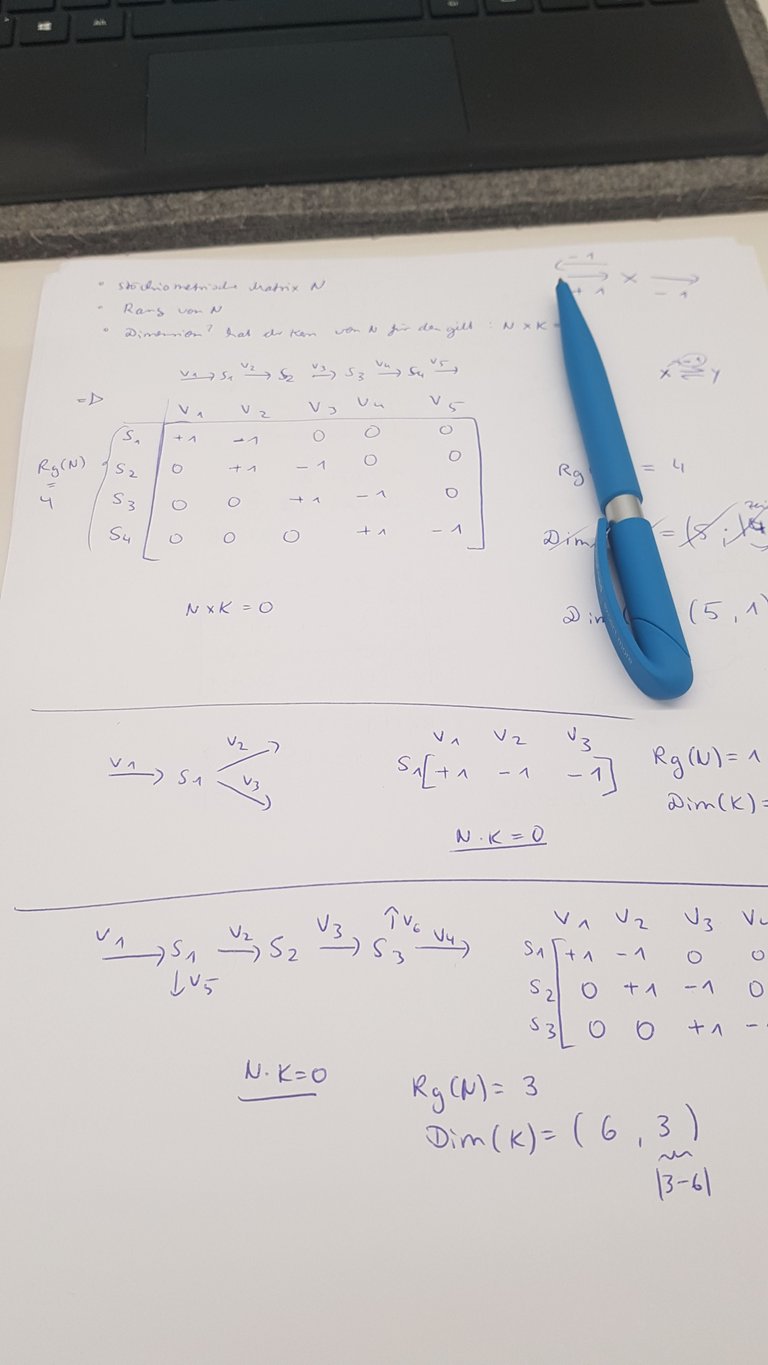 • Stöchiometrische Matrix N
• Rang von N
• Dimension? hat der Kern von N für den gilt : N × K =
-1
+1 x -1
x -1 y
v1 S1 v2 S2 v3 S3 v4 S4 v5
=>
v1 v2 v3 v4 v5
S1 +1 -1 0 0 0
S2 0 +1 -1 0 0
S3 0 0 +1 -1 0
S4 0 0 0 +1 -1
Rg(N)
=
4
Rg = 4
Dim =
Dim (5, 1)
N × K = 0
v1 S1 v2
v3
v1 v2 v3
S1 [+1 -1 -1]
Rg(N) = 1
Dim(K) =
N · K = 0
v1 S1 v2 S2 v3 S3 v4
v5
v6
v1 v2 v3 v4
S1 +1 -1 0 0
S2 0 +1 -1 0
S3 0 0 +1 -
N · K = 0
Rg(N) = 3
Dim(K) = (6, 3)
|3-6|